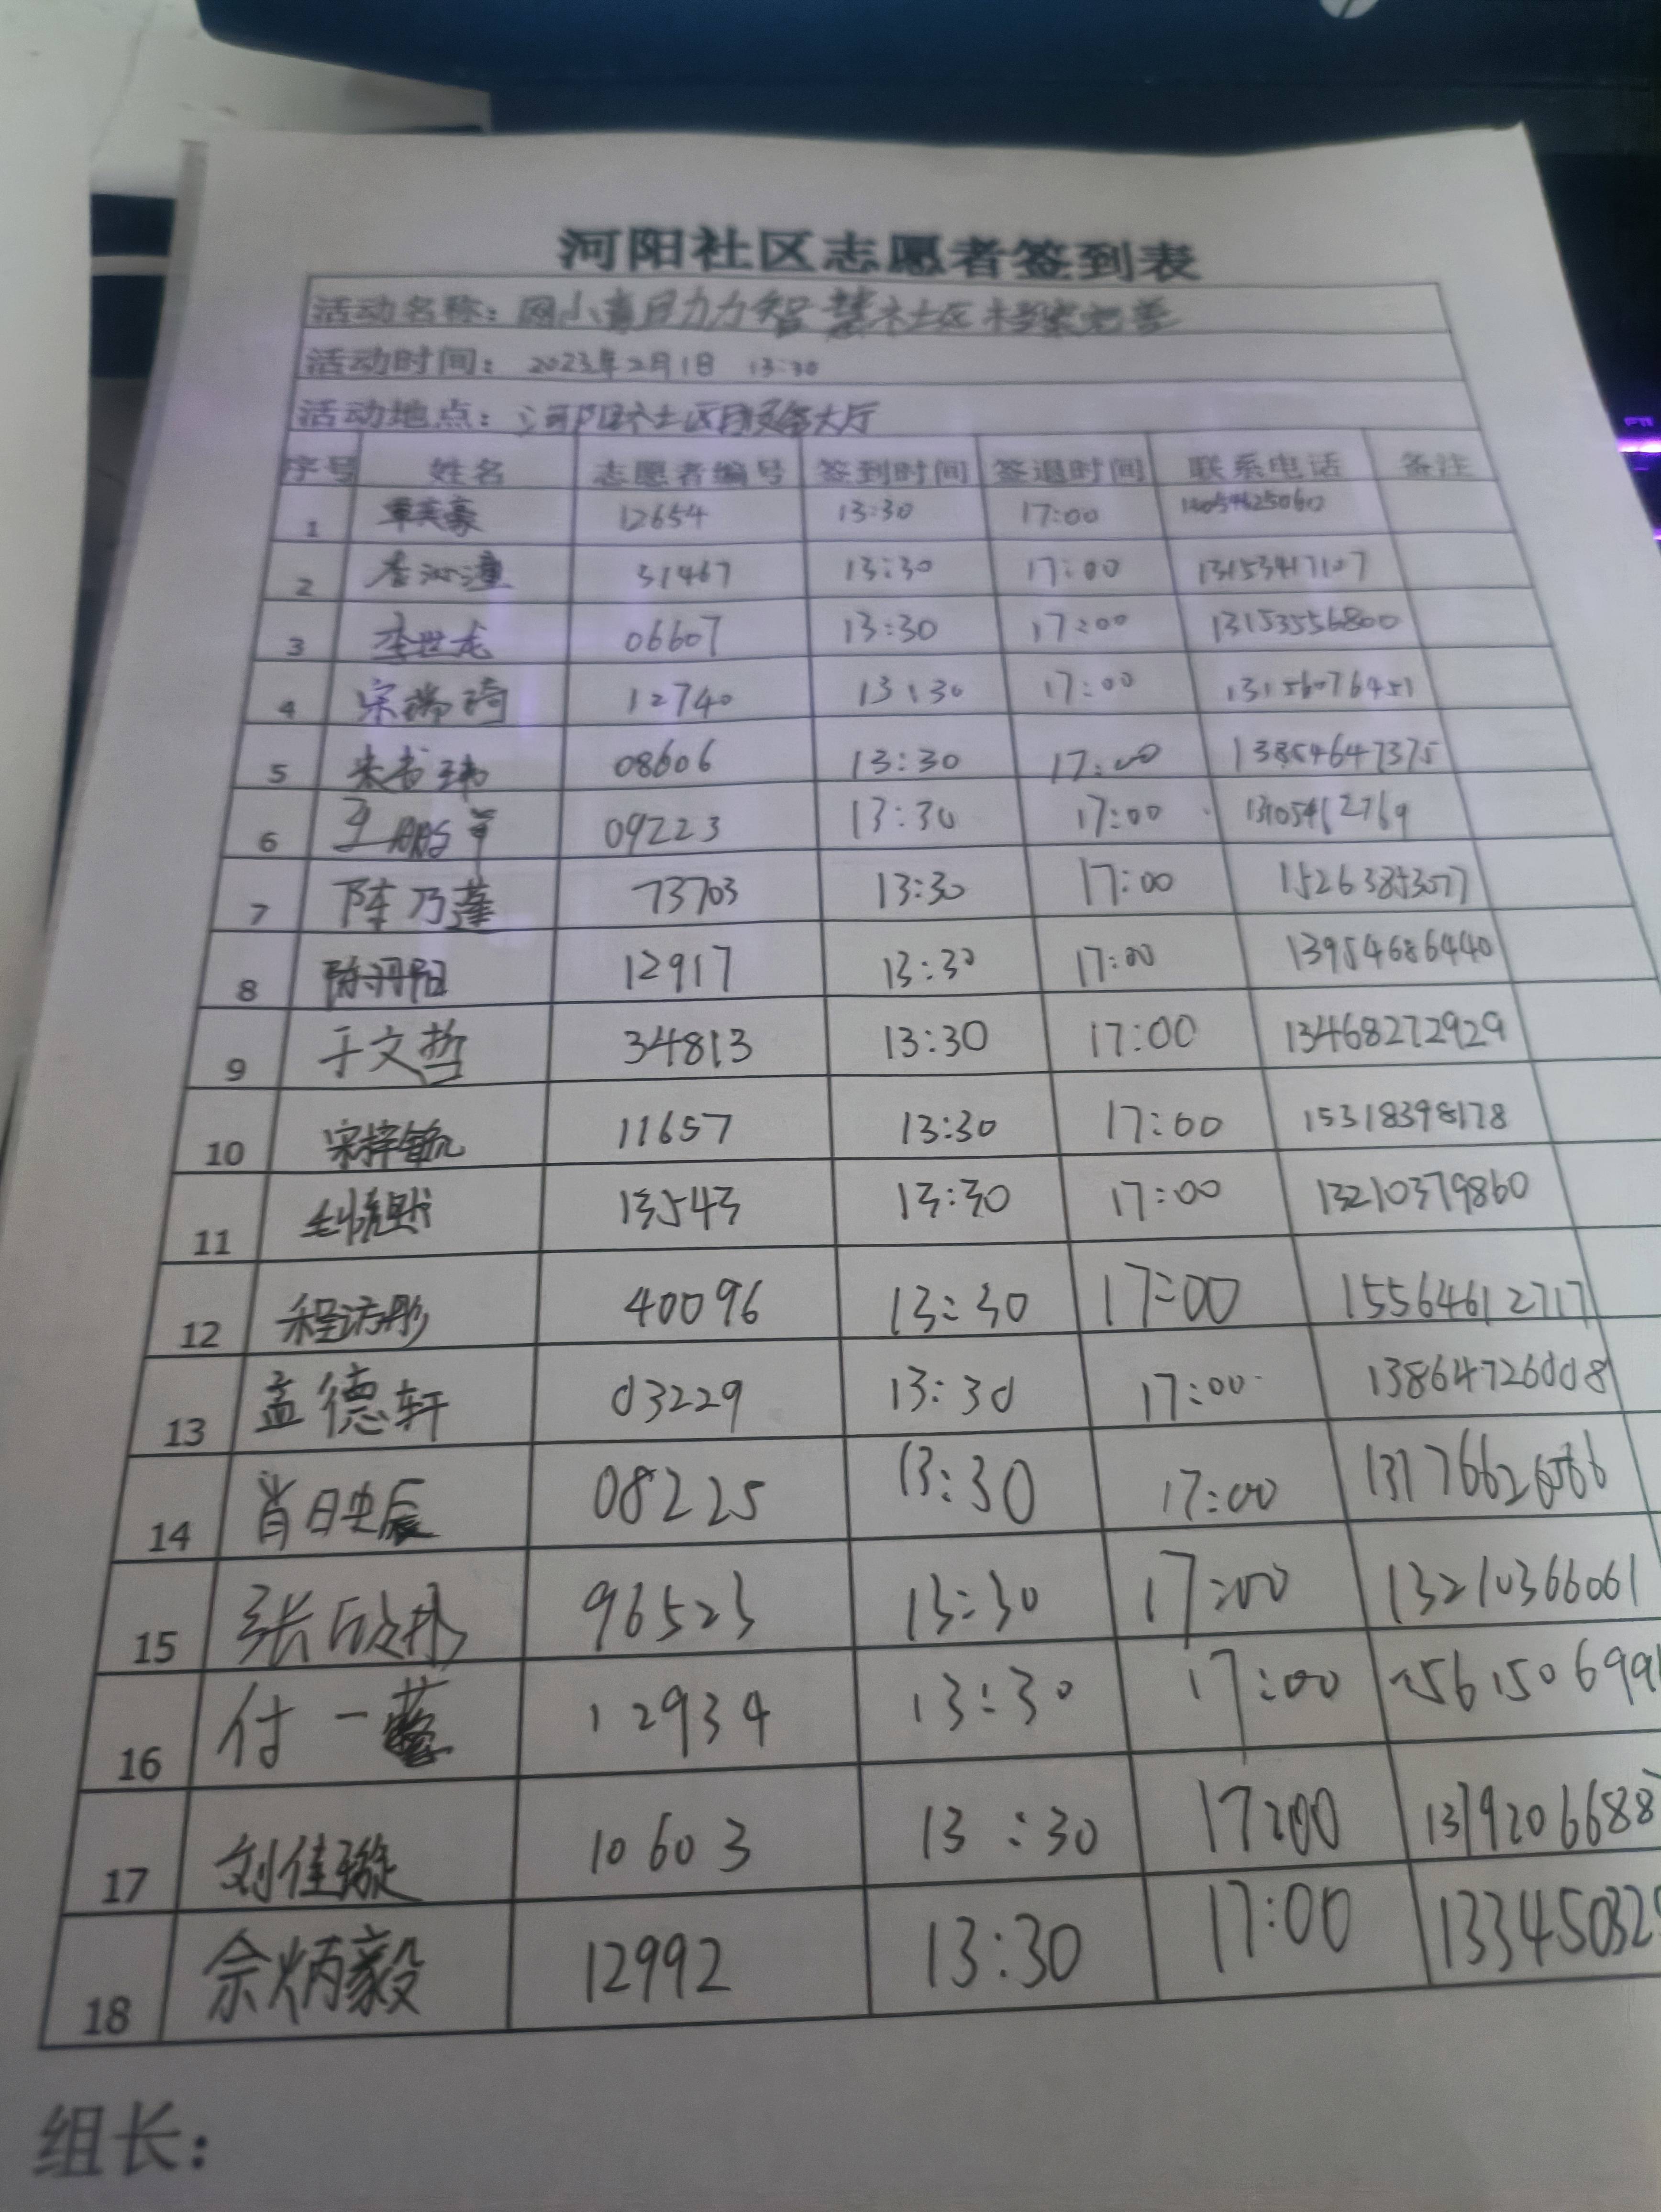 河阳社区志愿者签到表
活动名称：网小青助力智慧社区档案完善
活动时间：2023年2月1日 13:30
活动地点：河阳社区服务大厅
序号 姓名 志愿者编号 签到时间 签退时间 联系电话 备注
1 12654 13:30 17:00
2 31467 13:30 17:00 13153417107
3 李世龙 06607 13:30 17:00 13153556800
4 宋瑞琦 12740 13:30 17:00 13156076451
5 08606 13:30 17:00 13854647375
6 09223 13:30 17:00 13105412769
7 陈乃莲 73703 13:30 17:00 15263853077
8 陈河阳 12917 13:30 17:00 13954686440
9 于文哲 34813 13:30 17:00 13468272929
10 宋梓毓 11657 13:30 17:00 15318398178
11 13543 13:30 17:00 13210379860
12 程访彤 40096 13:30 17:00 15564612717
13 孟德轩 03229 13:30 17:00 13864726008
14 肖映辰 08225 13:30 17:00
15 张欣彤 96523 13:30 17:00 13210366061
16 付一 12934 13:30 17:00 1561506991
17 刘佳璇 10603 13:30 17:00 1379206688
18 佘炳毅 12992 13:30 17:00 133450325
组长：